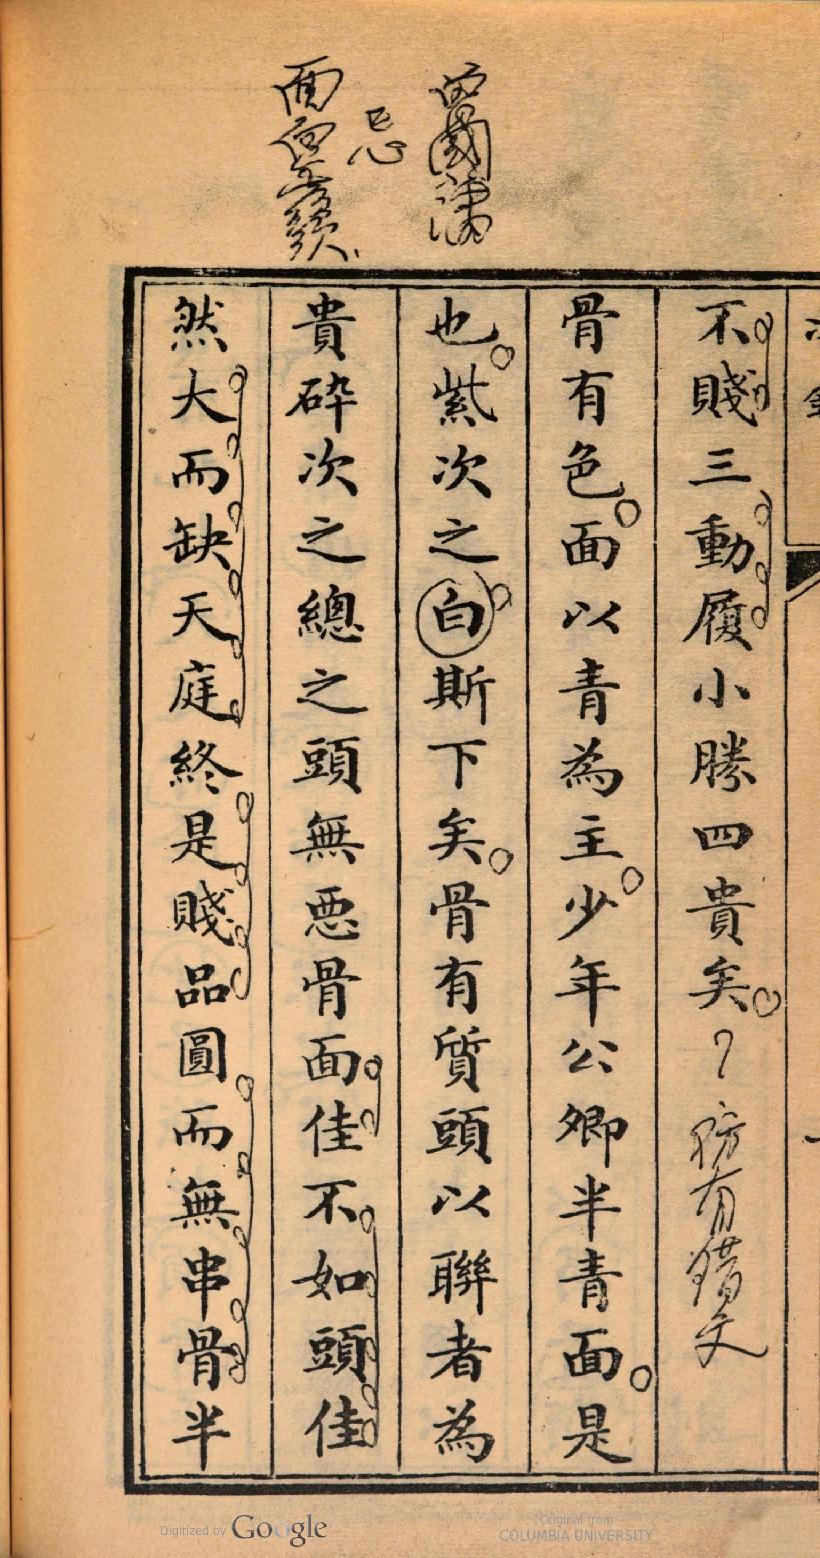 不賤三動履小勝四貴矣
骨有色面以青為主少年公卿半青面是
也紫次之白斯下矣骨有質頭以聯者為
貴碎次之總之頭無惡骨面佳不如頭佳
然大而缺天庭終是賤品圓而無串骨半
有錯文
忌
Digitized by Google
Original from
COLUMBIA UNIVERSITY